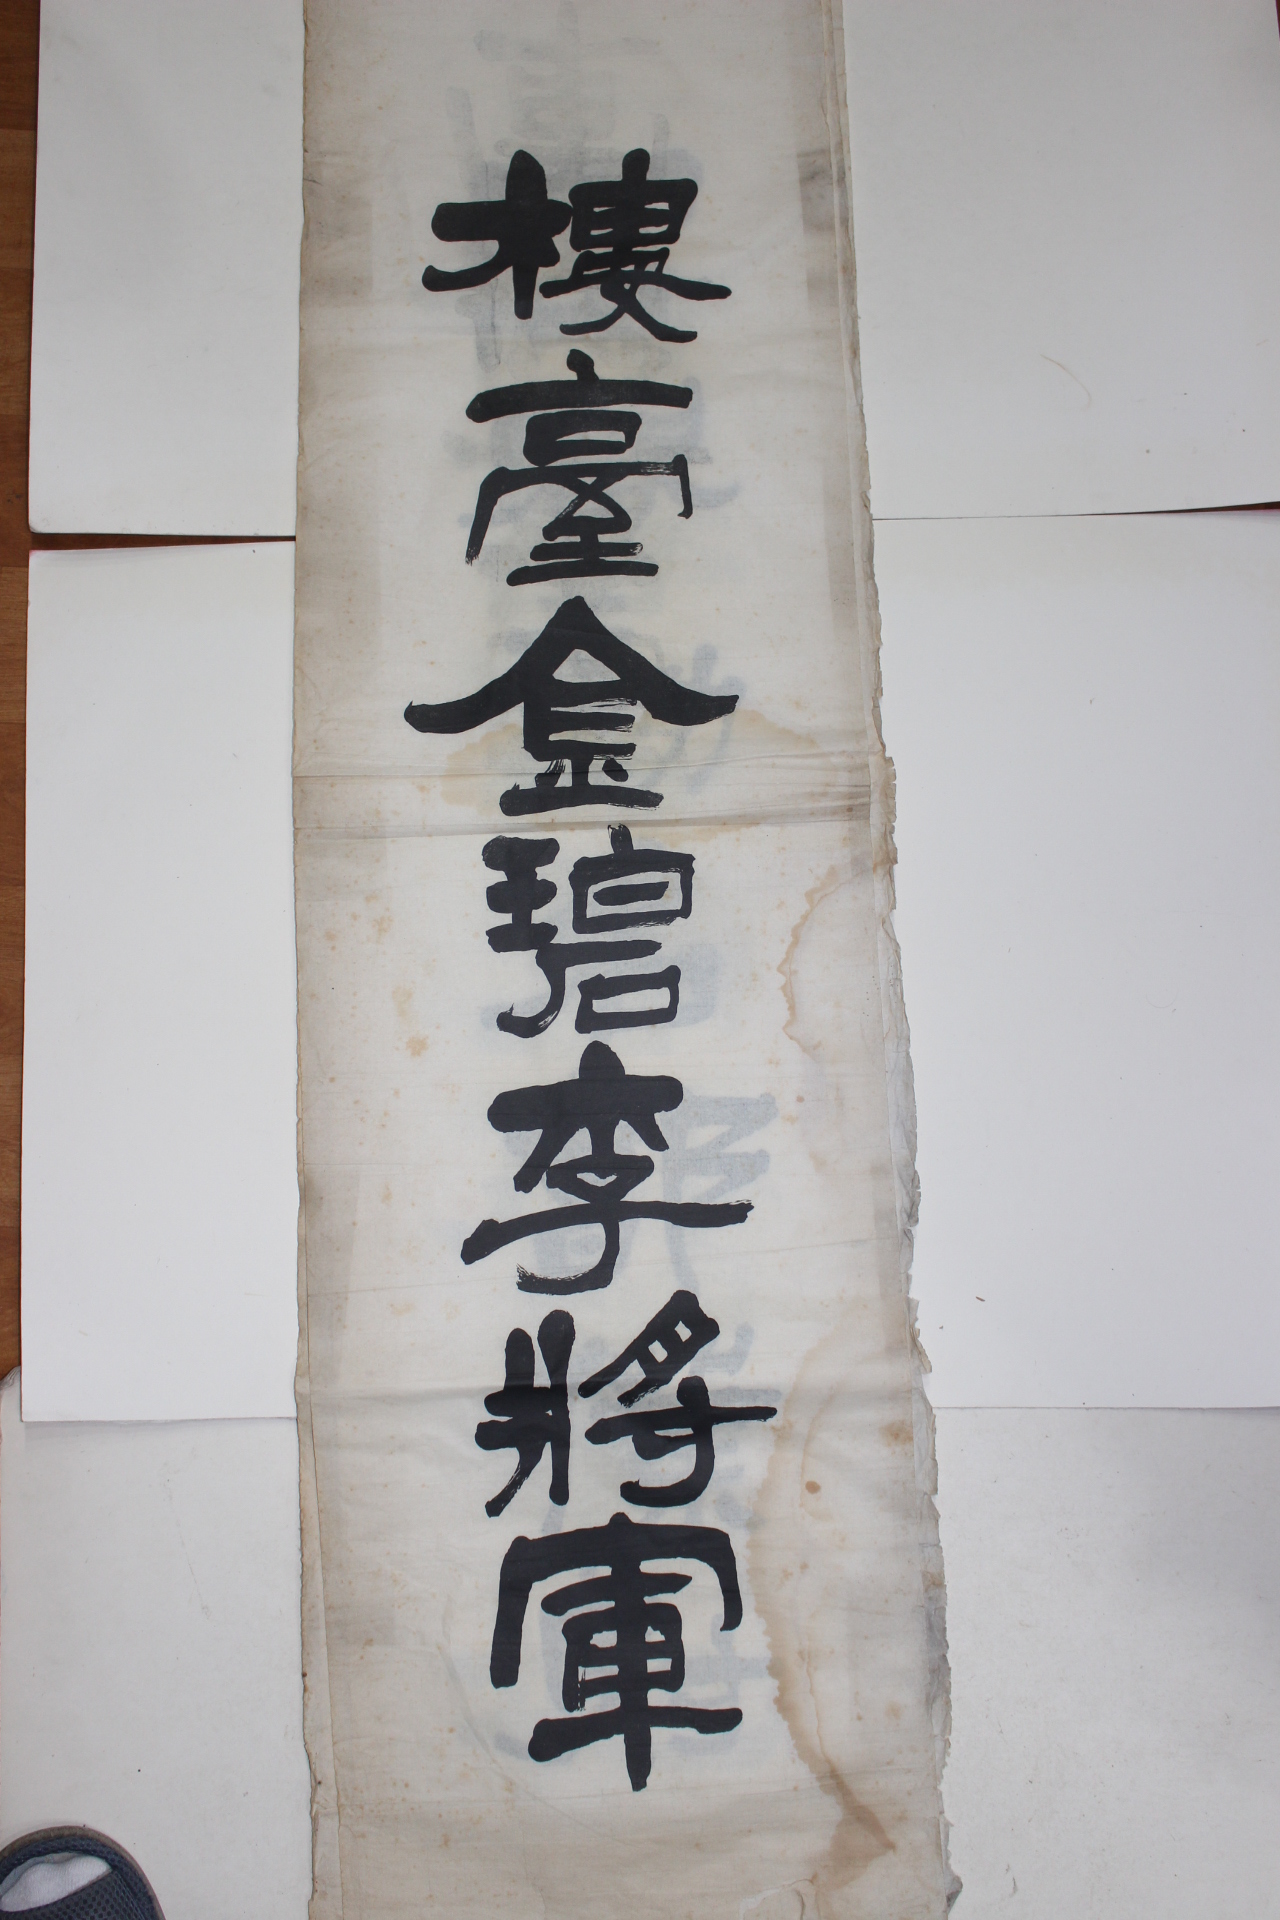 樓臺金碧李將軍